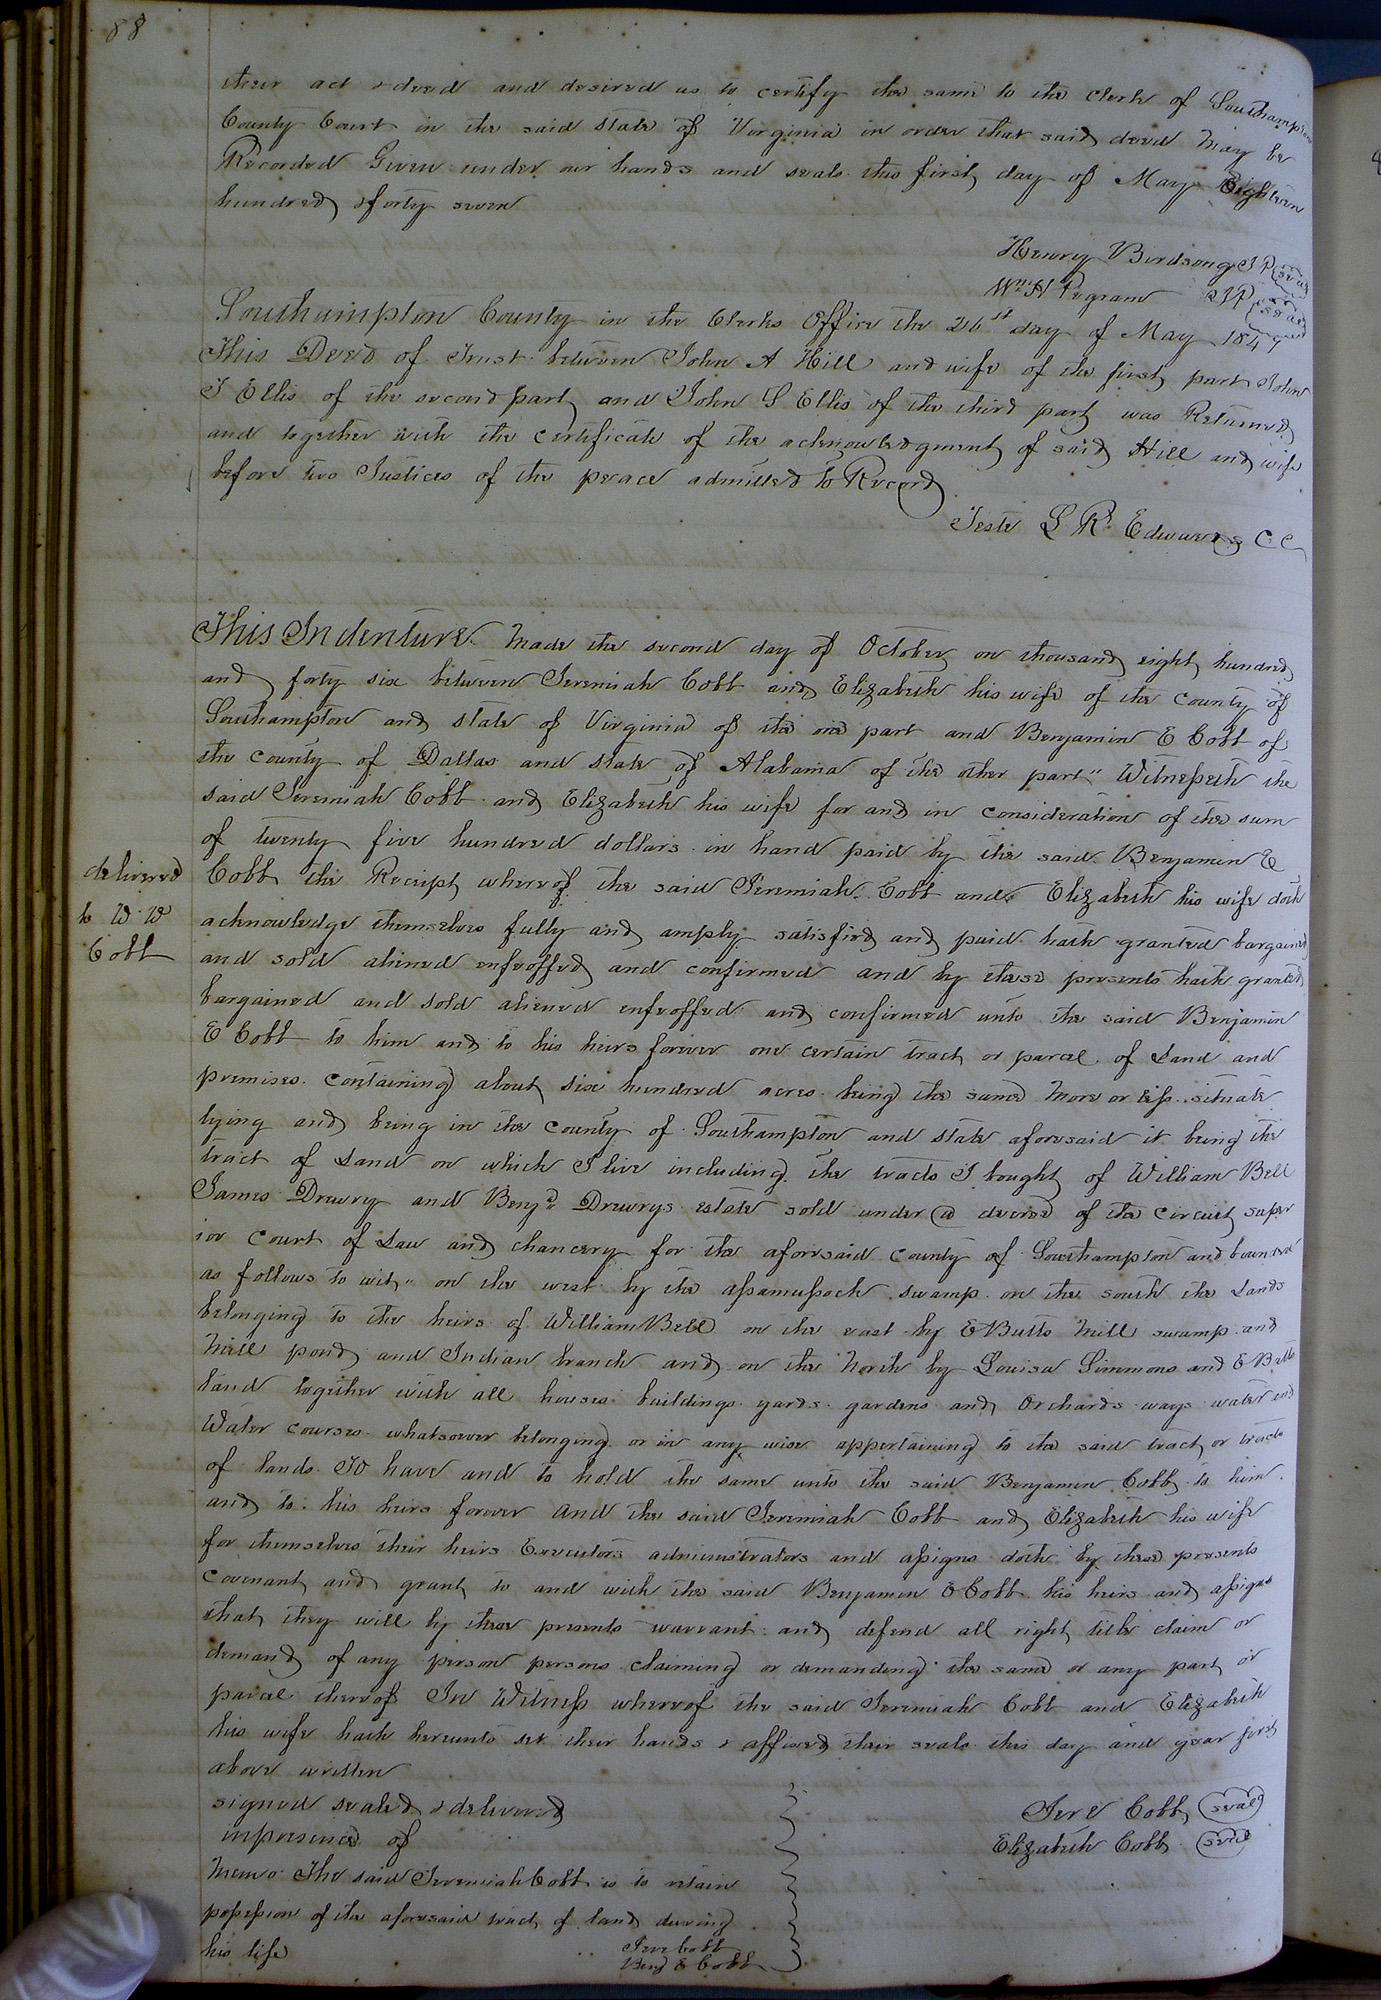 88
their act & deed and desired us to certify the same to the Clerk of Southampton
County Court in the said State of Virginia in order that said deed may be
Recorded Given under our hands and seals this first day of May Eighteen
hundred & forty seven
Henry Birdsong J P (seal)
Wm H Pegram J P (seal)
Southampton County in the Clerks Office the 26st day of May 1847
This Deed of Trust between John A Hill and wife of the first part John
T Ellis of the second part and John S Ellis of the third part was Returned
and together with the certificate of the acknowledgment of said Hill and wife
before two Justices of the peace admitted to Record
Teste L R Edwards C C
This Indenture Made the second day of October on thousand eight hundred
and forty six between Jeremiah Cobb and Elizabeth his wife of the County of
Southampton and state of Virginia of the one part and Benjamin E Cobb of
the County of Dallas and state of Alabama of the other part" Witnesseth the
said Jeremiah Cobb and Elizabeth his wife for and in consideration of the sum
of twenty five hundred dollars in hand paid by the said Benjamin E
delivered
to W W
Cobb
Cobb the Receipt whereof the said Jeremiah Cobb and Elizabeth his wife doth
acknowledge themselves fully and amply satisfied and paid hath granted bargained
and sold aliened enfeoffed and confirmed and by these presents hath granted
bargained and sold aliened enfeoffed and confirmed unto the said Benjamin
E Cobb to him and to his heirs forever one certain tract or parcel of Land and
premises containing about six hundred acres being the same More or less situate
lying and being in the County of Southampton and state aforesaid it being the
tract of Land on which I live including the tracts I bought of William Bell
James Drewry and Benjn Drewrys estate sold under a decree of the Circuit super
ior Court of Law and chancery for the aforesaid County of Southampton and bounded
as follows to wit" on the west by the assamussock swamp on the south the Lands
belonging to the heirs of William Bell on the east by E Butts Mill swamp and
Mill pond and Indian branch and on the North by Louisa Simmons and E Butts
land together with all houses buildings yards gardens and Orchards ways water and
Water courses whatsoever belonging or in any wise appertaining to the said tract or tracts
of lands To have and to hold the same unto the said Benjamin Cobb to him
and to his heirs forever and the said Jeremiah Cobb and Elizabeth his wife
for themselves their heirs Executors administrators and assigns doth by these presents
covenant and grant to and with the said Benjamin E Cobb his heirs and assigns
that they will by these presents warrant and defend all right title claim or
demand of any person persons claiming or demanding the same or any part or
parcel thereof In Witness whereof the said Jeremiah Cobb and Elizabeth
his wife hath hereunto set their hands & affixed their seals this day and year first
above written
signed sealed & delivered
in presence of
Jere Cobb (seal)
Elizabeth Cobb (seal)
Memo The said Jeremiah Cobb is to retain
possession of the aforesaid tract of land during
his life
Jere Cobb
Benj E Cobb